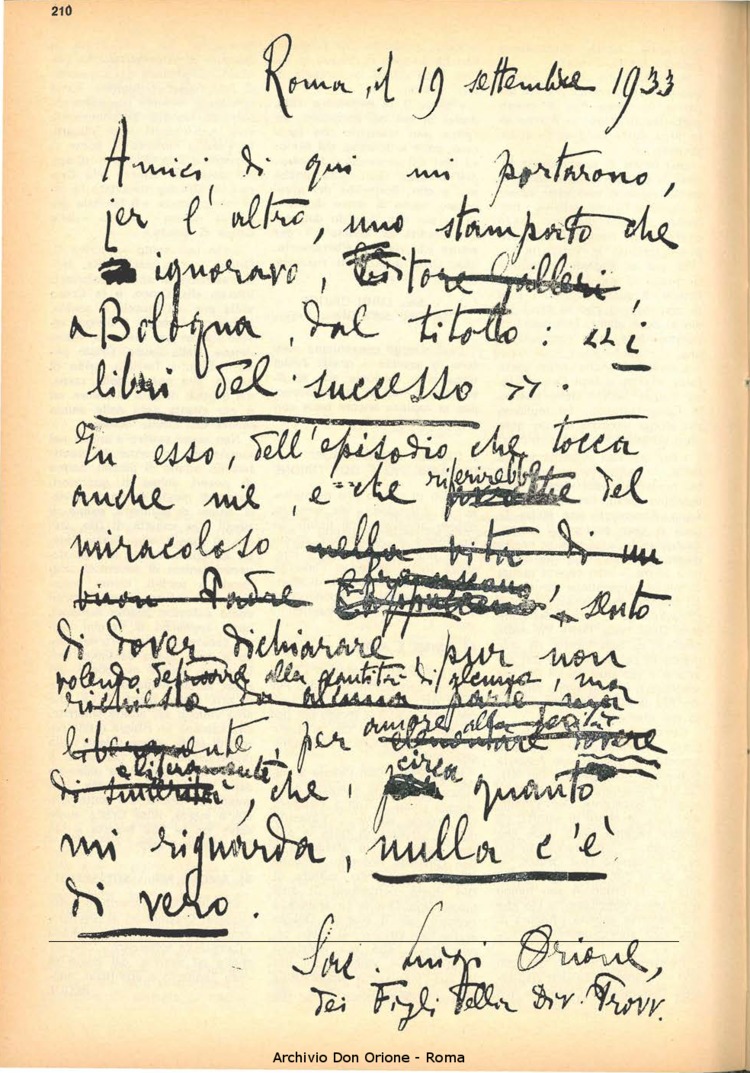 210
Roma, il 19 settembre 1933
Amici di qui mi portarono,
jer l'altro, uno stampato che
ignoravo, Editore Galleri,
a Bologna, dal titolo: << i
libri del successo >>.
In esso, dell'episodio che tocca
anche me, e che riferirebbe del
miracoloso nella vita di un
buon Padre Cappuccino, sento
di dover dichiarare, pur non
volendo alla quantità di
richiesta da alcuna parte, ma
amore alla
liberamente, per elementare dovere
e liberamente circa
di sincerità, che, quanto
mi riguarda, nulla c'è
di vero.
Sac. Luigi Orione,
dei Figli della Div. Provv.
Archivio Don Orione - Roma